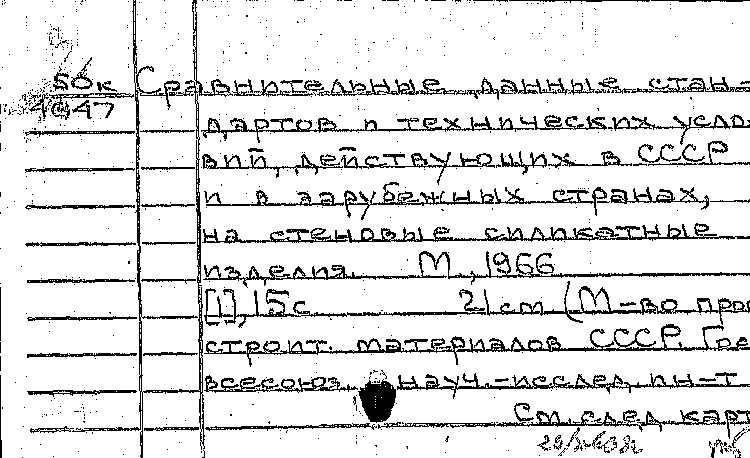 50к Сравнительные данные стан-
4047 дартов и технических усло-
вий, действующих в СССР
и в зарубежных странах,
на стеновые силикатные
изделия. М., 1966
[1], 15 с 21 см (М-во пром
строит. материалов СССР. Гос
всесоюз. науч.-исслед. ин-т
См. след. карт